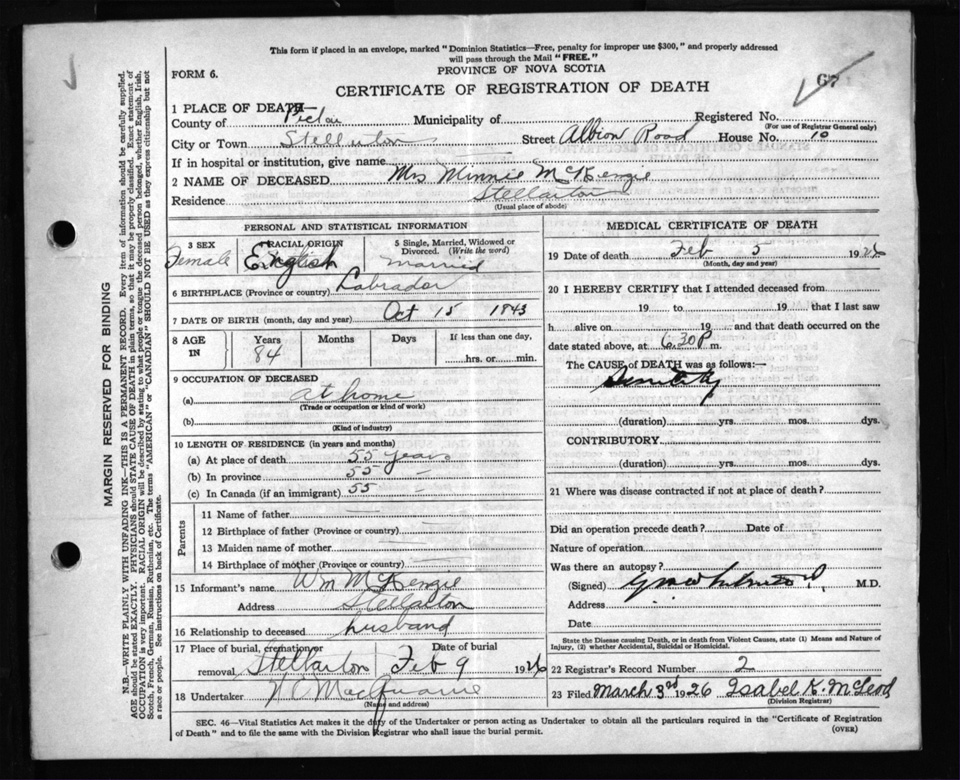 This form if placed in an envelope, marked "Dominion Statistics—Free, penalty for improper use $300," and properly addressed
will pass through the Mail "FREE."
FORM 6.
PROVINCE OF NOVA SCOTIA
67
CERTIFICATE OF REGISTRATION OF DEATH
1 PLACE OF DEATH—
County of Pictou Municipality of Registered No.
(For use of Registrar General only)
City or Town Stellarton Street Albion Road House No. 10
If in hospital or institution, give name
2 NAME OF DECEASED Mrs Minnie McKenzie
Residence Stellarton
(Usual place of abode)
PERSONAL AND STATISTICAL INFORMATION
3 SEX Female
RACIAL ORIGIN English
5 Single, Married, Widowed or Divorced. (Write the word) Married
6 BIRTHPLACE (Province or country) Labrador
7 DATE OF BIRTH (month, day and year) Oct 15 1843
8 AGE IN Years 84 Months Days If less than one day, hrs. or min.
9 OCCUPATION OF DECEASED
(a) at home
(Trade or occupation or kind of work)
(b)
(Kind of industry)
10 LENGTH OF RESIDENCE (in years and months)
(a) At place of death 55 years
(b) In province 55
(c) In Canada (if an immigrant) 55
Parents
11 Name of father
12 Birthplace of father (Province or country)
13 Maiden name of mother
14 Birthplace of mother (Province or country)
15 Informant's name Wm McKenzie
Address Stellarton
16 Relationship to deceased husband
17 Place of burial, cremation or removal Stellarton Date of burial Feb 9 1926
18 Undertaker
(Name and address)
MEDICAL CERTIFICATE OF DEATH
19 Date of death Feb 5 1926
(Month, day and year)
20 I HEREBY CERTIFY that I attended deceased from
19 to 19 that I last saw
h alive on 19 and that death occurred on the
date stated above, at 6.30 P m.
The CAUSE of DEATH was as follows:—
(duration) yrs. mos. dys.
CONTRIBUTORY
(duration) yrs. mos. dys.
21 Where was disease contracted if not at place of death?
Did an operation precede death? Date of
Nature of operation
Was there an autopsy?
(Signed) M.D.
Address
Date
State the Disease causing Death, or in death from Violent Causes, state (1) Means and Nature of
Injury, (2) whether Accidental, Suicidal or Homicidal.
22 Registrar's Record Number 2
23 Filed March 3rd 1926 Isabel K. McLeod
(Division Registrar)
SEC. 46—Vital Statistics Act makes it the duty of the Undertaker or person acting as Undertaker to obtain all the particulars required in the "Certificate of Registration
of Death" and to file the same with the Division Registrar who shall issue the burial permit.
(OVER)
MARGIN RESERVED FOR BINDING
N.B.—WRITE PLAINLY WITH UNFADING INK—THIS IS A PERMANENT RECORD. Every item of information should be carefully supplied.
AGE should be stated EXACTLY. PHYSICIANS should STATE CAUSE OF DEATH in plain terms, so that it may be properly classified. Exact statement of
OCCUPATION is very important. RACIAL ORIGIN will be described by stating to what people or tongue the deceased person belonged, whether English, Irish,
Scotch, French, German, Russian, Ruthenian, etc. The terms "AMERICAN" or "CANADIAN" SHOULD NOT BE USED as they express citizenship but not
a race or people. See instructions on back of Certificate.